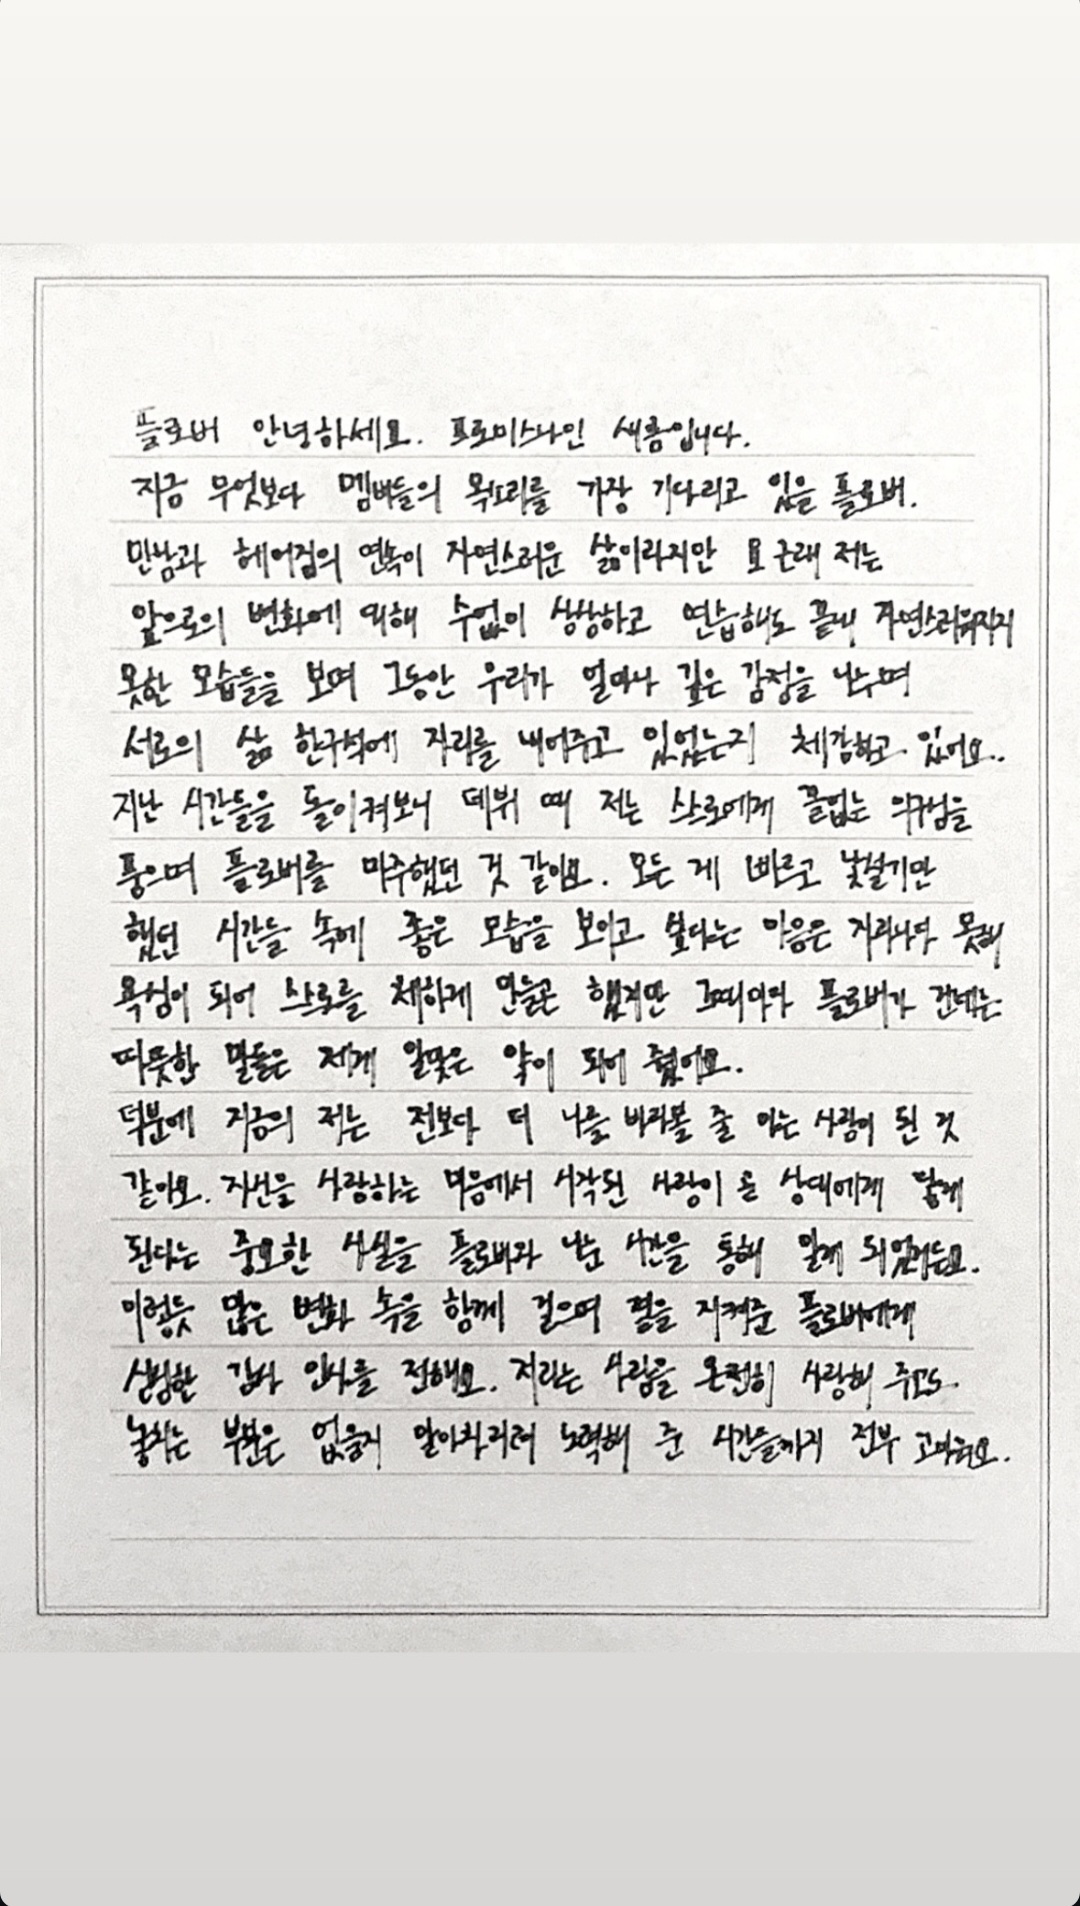 플로버 안녕하세요. 프로미스나인 새롬입니다.
지금 무엇보다 멤버들의 목소리를 가장 기다리고 있을 플로버.
만남과 헤어짐의 연속이 자연스러운 삶이라지만 요 근래 저는
앞으로의 변화에 대해 수없이 상상하고 연습해도 끝내 자연스러워지지
못한 모습들을 보며 그동안 우리가 얼마나 깊은 감정을 나누며
서로의 삶 한구석에 자리를 내어주고 있었는지 체감하고 있어요..
지난 시간들을 돌이켜보니 데뷔 때 저는 스스로에게 끝없는 의구심을
품으며 플로버를 마주했던 것 같아요. 모든 게 빠르고 낯설기만
했던 시간들 속에 좋은 모습을 보이고 싶다는 마음은 자라나다 못해
욕심이 되어 스스로를 체하게 만들곤 했지만 그때마다 플로버가 건네는
따뜻한 말들은 제게 알맞은 약이 되어 줬어요.
덕분에 지금의 저는 전보다 더 나를 바라볼 줄 아는 사람이 된 것
같아요. 자신을 사랑하는 마음에서 시작된 사랑이 온 상대에게 닿게
된다는 중요한 사실을 플로버와 나눈 시간을 통해 알게 되었거든요.
이렇듯 많은 변화 속을 함께 걸으며 곁을 지켜준 플로버에게
심심한 감사 인사를 전해요. 저라는 사람을 온전히 사랑해 주고도
놓치는 부분은 없을지 알아차리려 노력해 준 시간들까지 전부 고마워요.